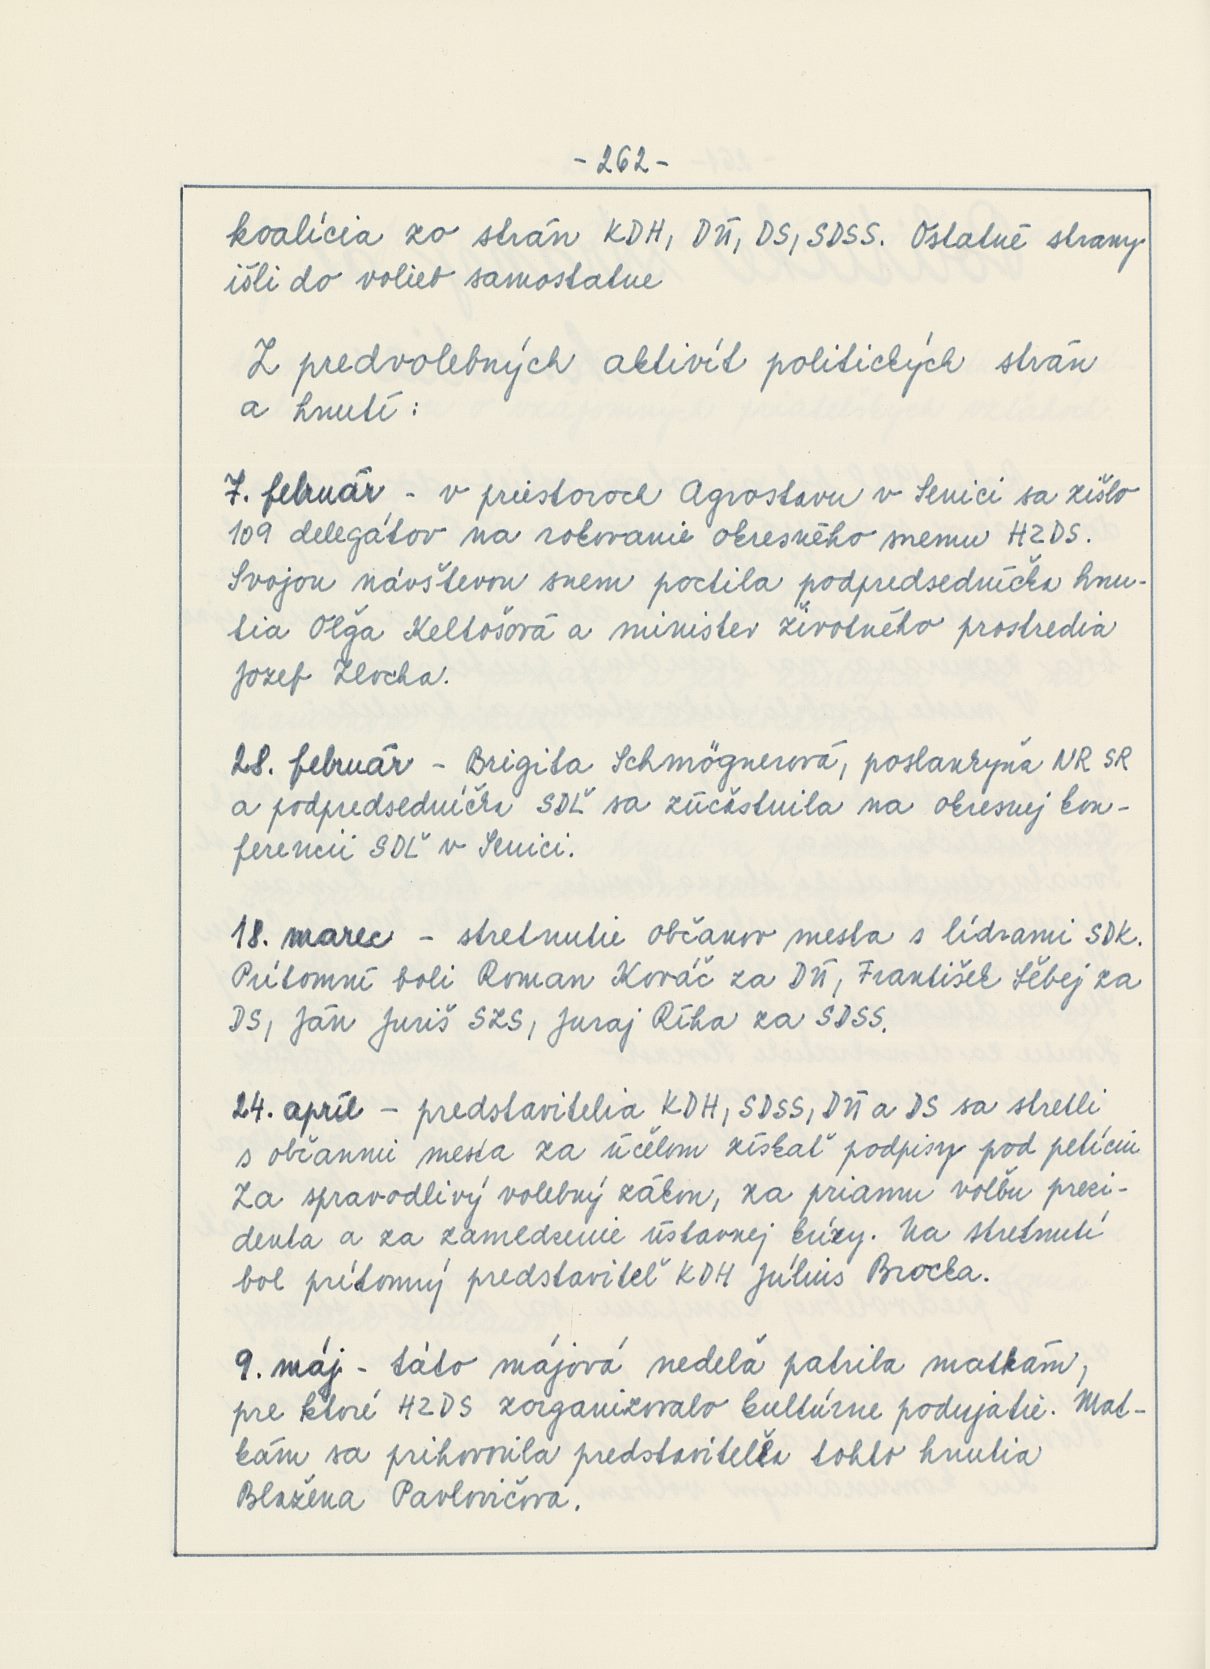 - 262 -
koalícia zo strán KDH, DÚ, DS, SDSS. Ostatné strany
išli do volieb samostatne
Z predvolebných aktivít politických strán
a hnutí:
7. február - v priestoroch Agrostavu v Senici sa zišlo
109 delegátov na rokovanie okresného snemu HZDS.
Svojou návštevou snem poctila podpredsedníčka hnu-
tia Oľga Keltošová a minister životného prostredia
Jozef Zlocha.
28. február - Brigita Schmögnerová, poslankyňa NR SR
a podpredsedníčka SDĽ sa zúčastnila na okresnej kon-
ferencii SDĽ v Senici.
18. marec - stretnutie občanov mesta s lídrami SDK.
Prítomní boli Roman Kováč za DÚ, František Šebej za
DS, Ján Juriš SZS, Juraj Ríha za SDSS.
24. apríl - predstavitelia KDH, SDSS, DÚ a DS sa stretli
s občanmi mesta za účelom získať podpisy pod petíciu
Za spravodlivý volebný zákon, za priamu voľbu prezi-
denta a za zamedzenie ústavnej krízy. Na stretnutí
bol prítomný predstaviteľ KDH Július Brocka.
9. máj - táto májová nedeľa patrila matkám,
pre ktoré HZDS zorganizovalo kultúrne podujatie. Mat-
kám sa prihovorila predstaviteľka tohto hnutia
Blažena Pavlovičová.